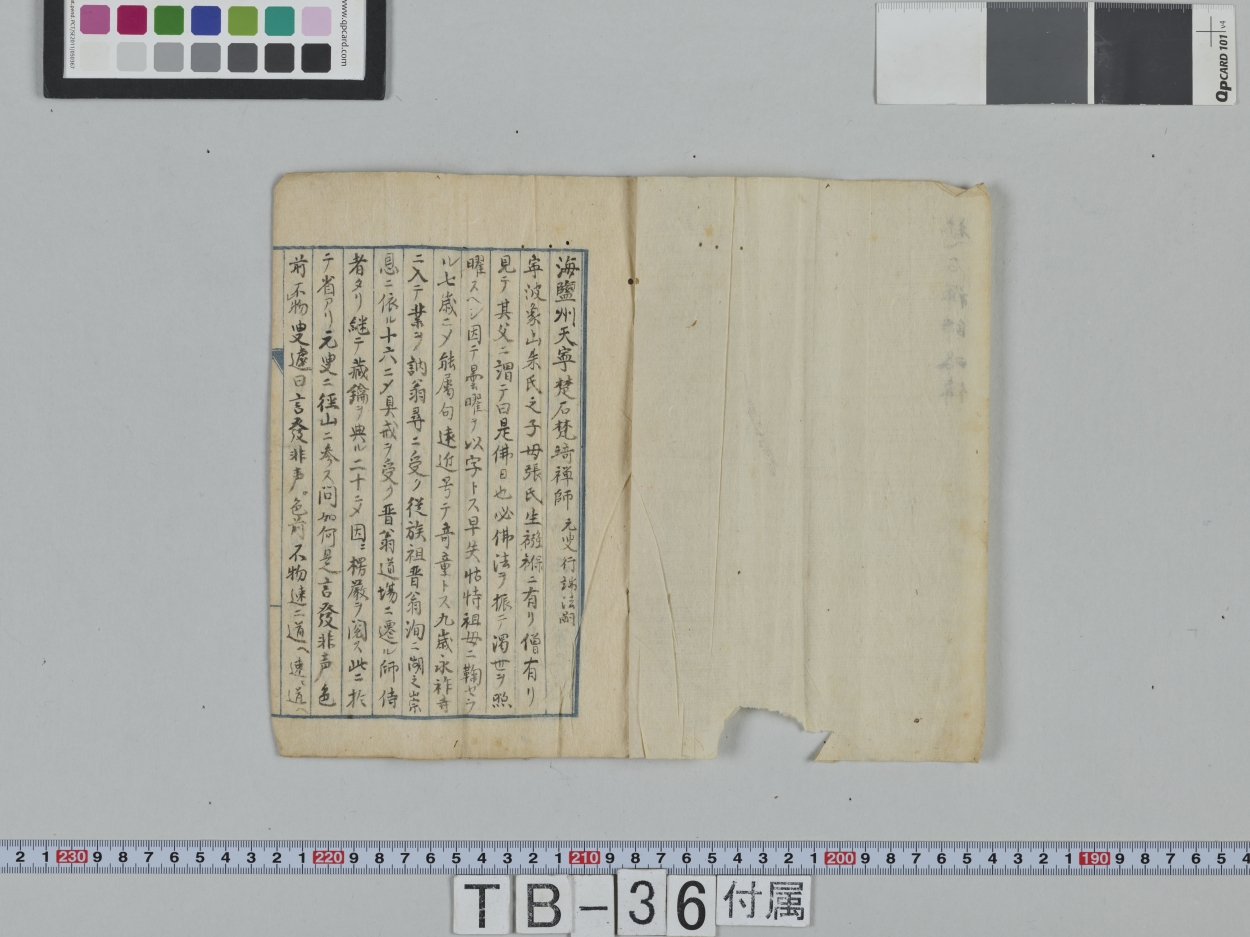 海鹽州天寧楚石梵琦禅師 元叟行端法嗣
寧波象山朱氏之子母張氏生襁褓ニ有リ僧有リ
見テ其父ニ謂テ曰是佛日也必佛法ヲ振テ濁世ヲ照
曜スヘシ因テ曇曜ヲ以字トス早失怙恃祖母ニ鞠セラ
ル七歳ニメ能属句遠近号テ奇童トス九歳永祚寺
ニ入テ業ヲ訥翁尋ニ受ク従族祖晋翁洵ニ湖之崇
恩ニ依ル十六ニメ具戒ヲ受ク晋翁道場ニ遷ル師侍
者タリ継テ蔵鑰ヲ典ル二十ニメ因ニ楞厳ヲ閲ス此ニ於
テ省アリ元叟ニ徑山ニ参ス問如何是言發非声色
前不物叟遽曰言發非声色前不物速ニ道へ速ニ道へ
www.qpcard.com
QpCARD 101 v4
2 1 230 9 8 7 6 5 4 3 2 1 220 9 8 7 6 5 4 3 2 1 210 9 8 7 6 5 4 3 2 1 200 9 8 7 6 5 4 3 2 1 190 9 8 7 6 5 4
TB-36付属